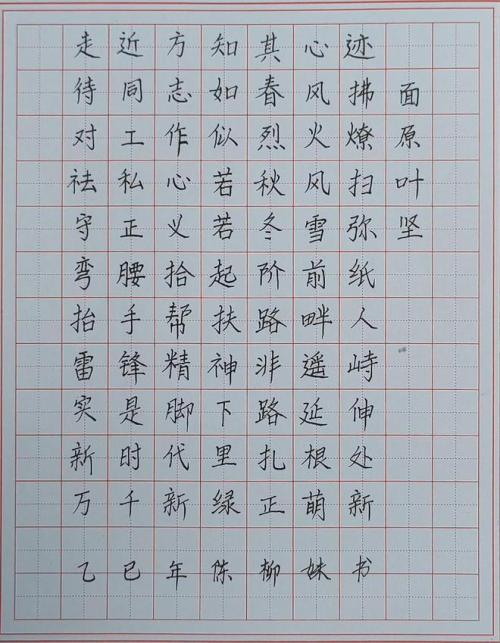 走近方知其心迹
待同志如春风拂面
对工作似烈火燎原
祛私心若秋风扫叶
守正义若冬雪弥坚
弯腰拾起阶前纸
抬手帮扶路畔人
雷锋精神非遥峙
实是脚下路延伸
新时代里扎根处
万千新绿正萌新
乙巳年陈柳妹书